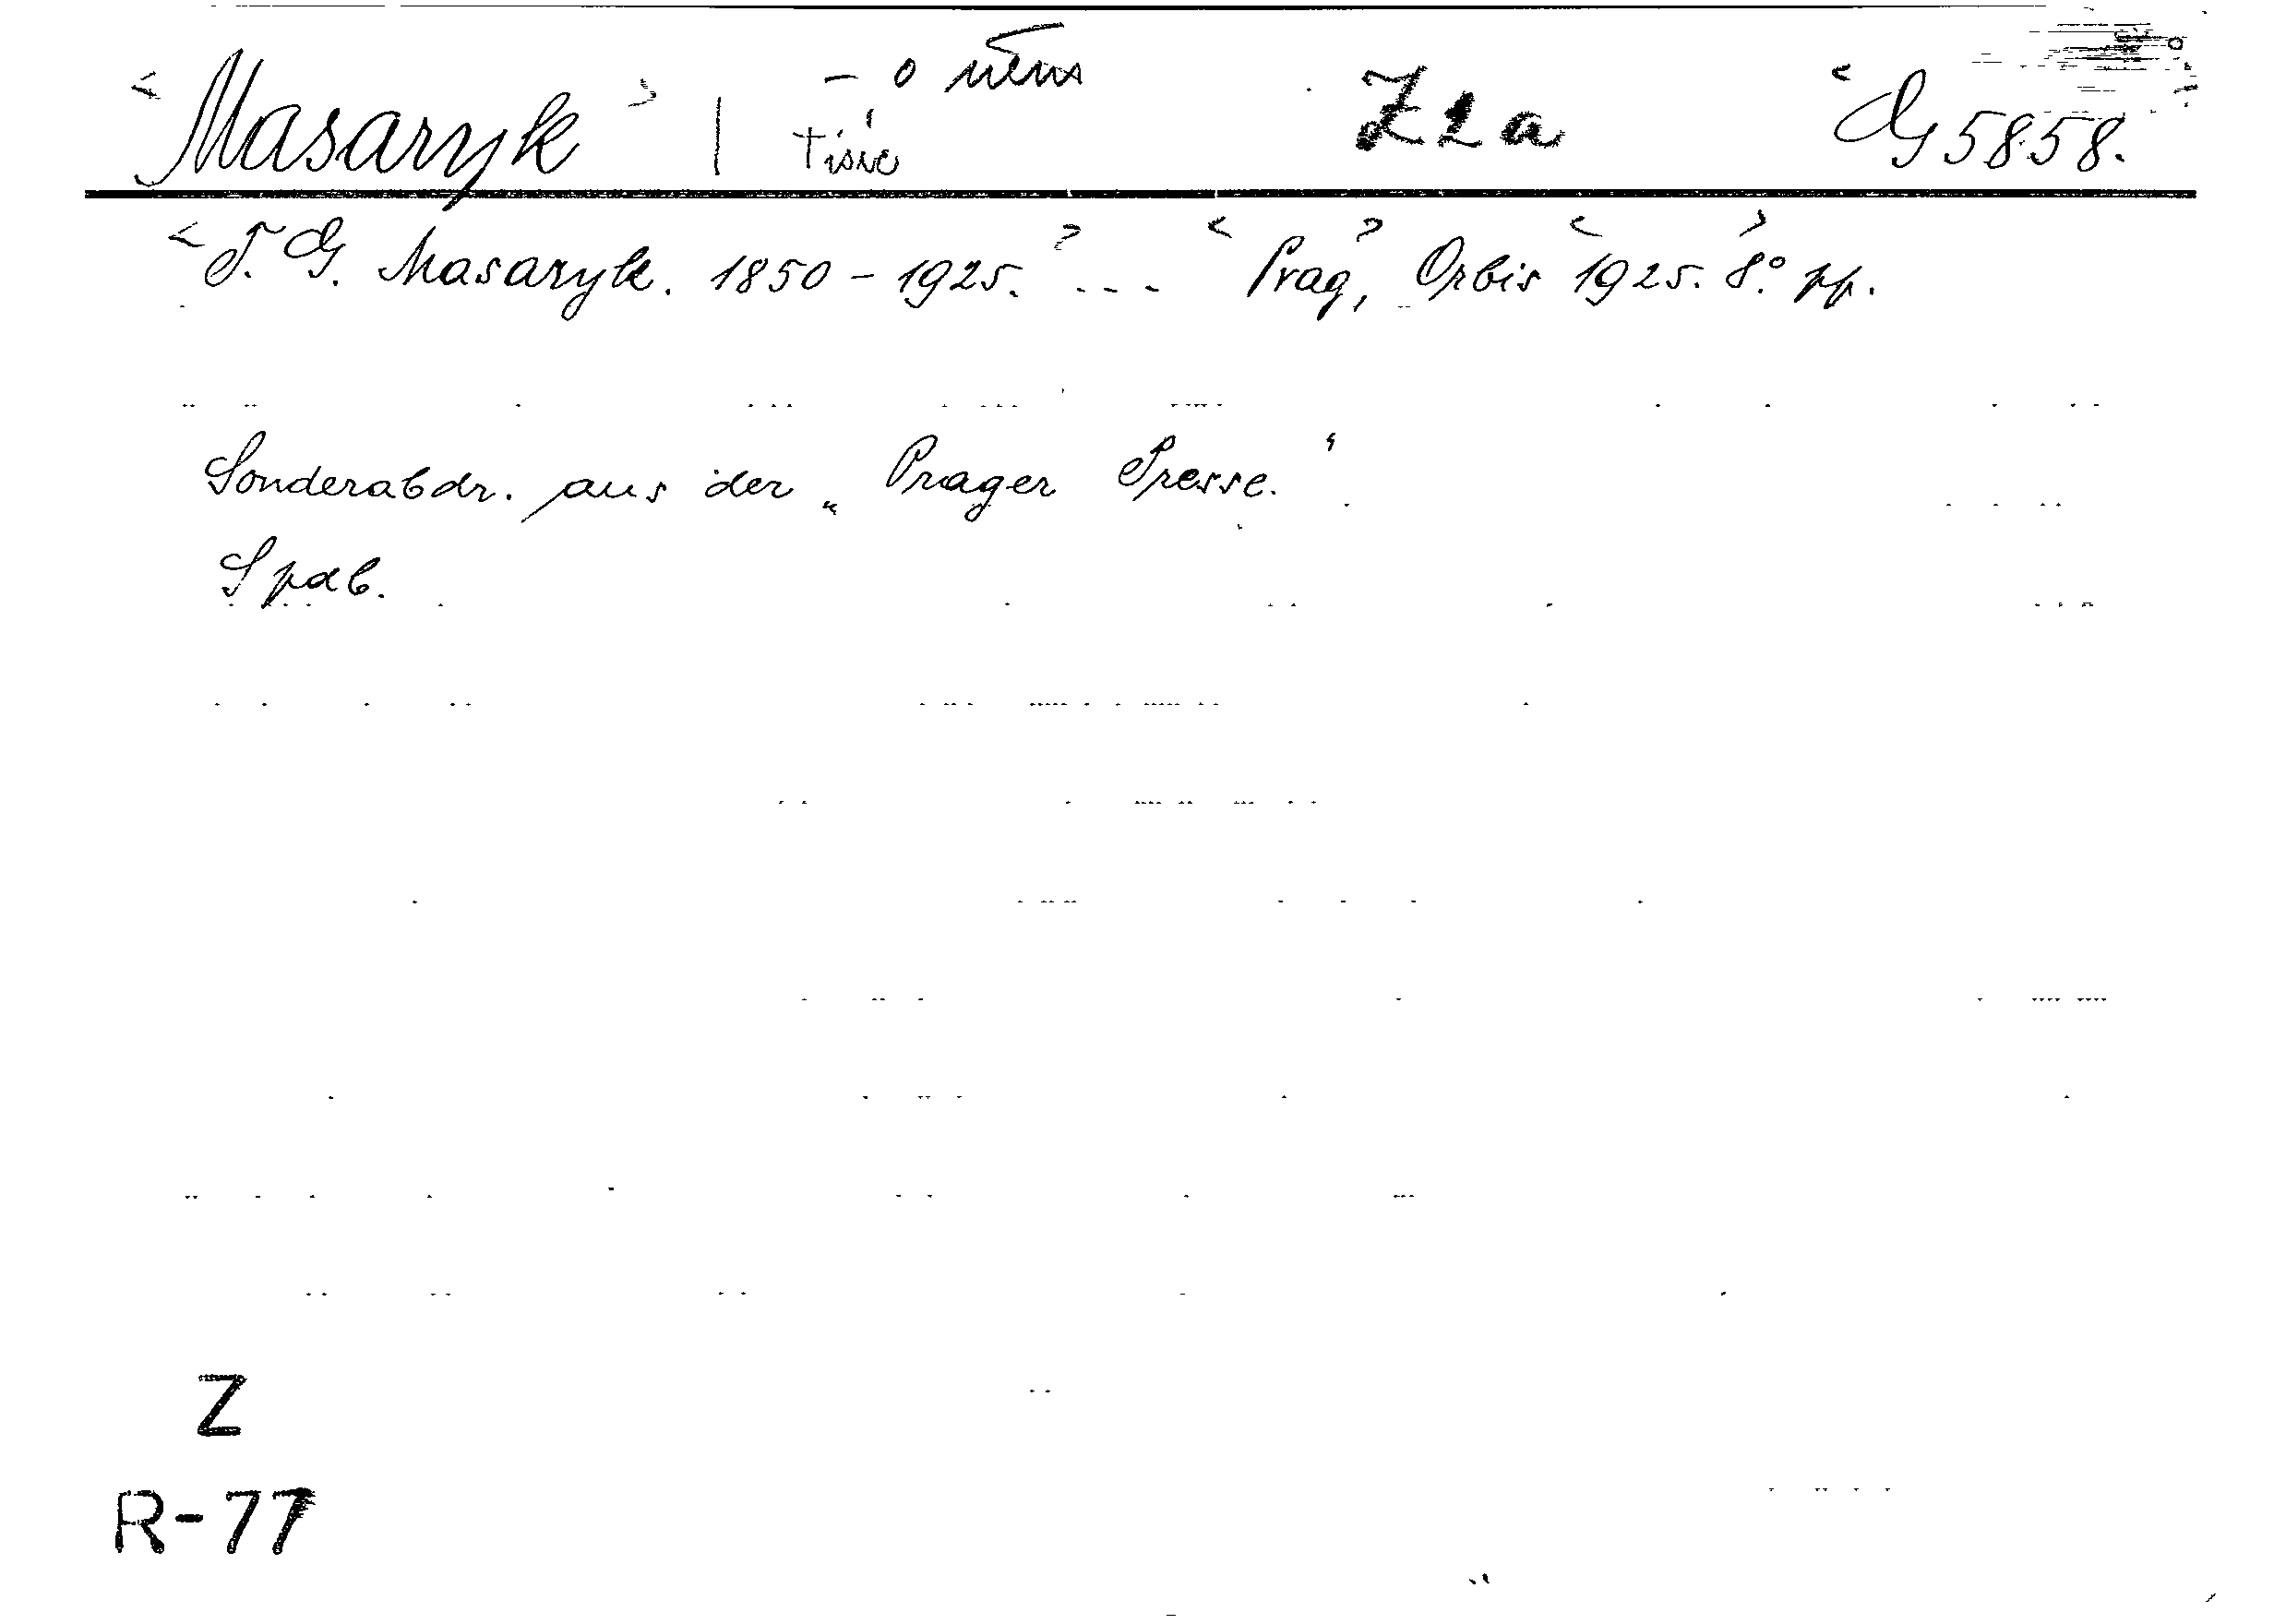 <Masaryk> | - o něm Z2a <G 5858.>
tisíc
<T. G. Masaryk. 1850-1925.> ... <Prag,> Orbis <1925.> 8.° pp.
Sonderabdr. aus der „Prager Presse.“
Spab.
Z
R-77